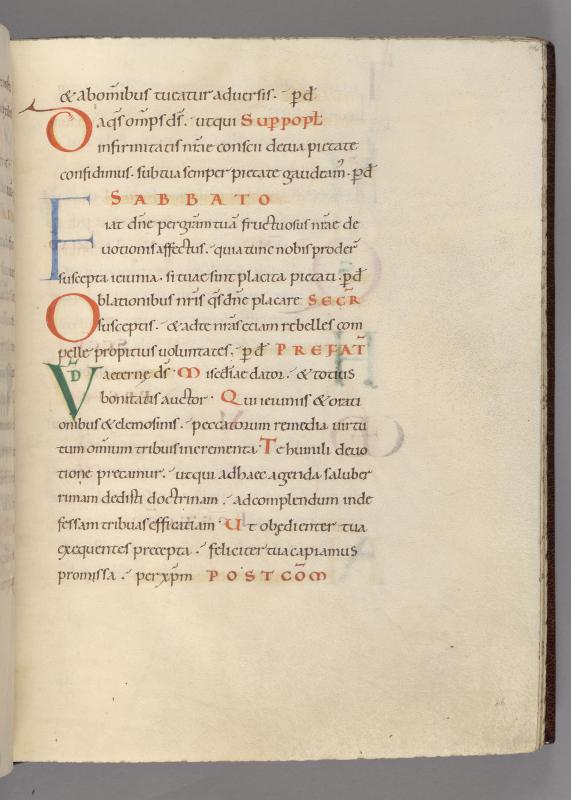 & ab om̅ibus tueatur adversis. p̅d̅
Da q̅s om̅ps d̅s. ut qui Sup popl̅
infirmitatis n̅rae conscii de tua pietate
confidimus. sub tua semper pietate gaudeam᷒. p̅d̅
SABBATO
Fiat d̅ne per gr̅am tuā fructuosus n̅rae de
uotionis affectus. quia tunc nobis proder̅
suscepta ieiunia. si tuae sint placita pietati. p̅d̅
Oblationibus n̅ris q̅s d̅ne placare SECR̅
susceptis. & ad te n̅ras etiam rebelles com
pelle propitius uoluntates. p̅d̅ PREFAT̅
VD̅ aeterne d̅s Misc̅diae dator. & totius
bonitatis auctor. Qui ieiuniis & orati
onibus & elemosinis. peccatorum remedia uirtu
tum omium tribuis incrementa. Te humili deuo
tione precamur. ut qui ad haec agenda saluber
rimam dedisti doctrinam. ad complendum inde
fessam tribuas efficatiam. Ut obędienter tua
exequentes precepta. feliciter tua capiamus
promissa. per xp̅m POST COM̅